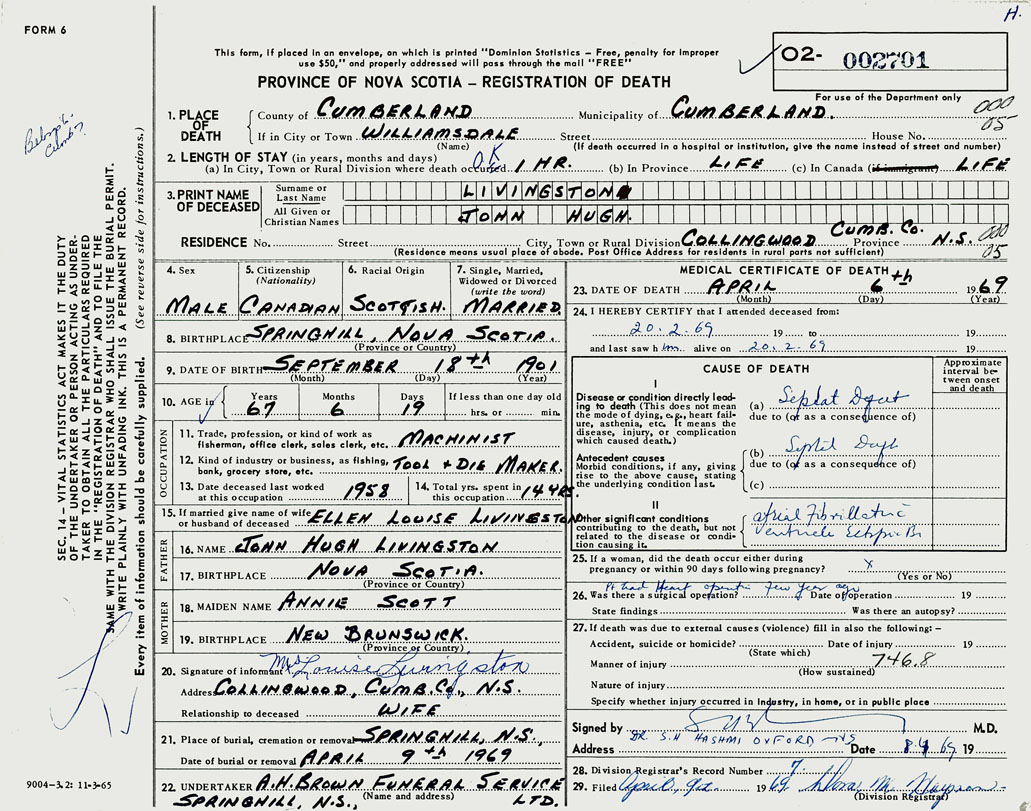 H.
FORM 6
This form, if placed in an envelope, on which is printed "Dominion Statistics – Free, penalty for improper
use $50," and properly addressed will pass through the mail "FREE"
PROVINCE OF NOVA SCOTIA – REGISTRATION OF DEATH
O2- 002701
For use of the Department only
000
05
1. PLACE OF DEATH County of CUMBERLAND Municipality of CUMBERLAND.
If in City or Town WILLIAMSDALE Street House No.
(Name) (If death occurred in a hospital or institution, give the name instead of street and number)
2. LENGTH OF STAY (in years, months and days) OK
(a) In City, Town or Rural Division where death occurred 1 HR. (b) In Province LIFE (c) In Canada (if immigrant) LIFE
3. PRINT NAME OF DECEASED Surname or Last Name LIVINGSTON
All Given or Christian Names JOHN HUGH.
RESIDENCE No. Street City, Town or Rural Division COLLINGWOOD CUMB. Co. Province N.S. 000
(Residence means usual place of abode. Post Office Address for residents in rural parts not sufficient) 05
4. Sex MALE
5. Citizenship (Nationality) CANADIAN
6. Racial Origin SCOTTISH.
7. Single, Married, Widowed or Divorced (write the word) MARRIED.
8. BIRTHPLACE SPRINGHILL, NOVA SCOTIA.
(Province or Country)
9. DATE OF BIRTH SEPTEMBER 18th 1901
(Month) (Day) (Year)
10. AGE in Years 67 Months 6 Days 19 If less than one day old hrs. or min.
OCCUPATION
11. Trade, profession, or kind of work as
fisherman, office clerk, sales clerk, etc. MACHINIST
12. Kind of industry or business, as fishing,
bank, grocery store, etc. TOOL + DIE MAKER.
13. Date deceased last worked
at this occupation 1958
14. Total yrs. spent in
this occupation 14 YRS.
15. If married give name of wife
or husband of deceased ELLEN LOUISE LIVINGSTON
FATHER
16. NAME JOHN HUGH LIVINGSTON
17. BIRTHPLACE NOVA SCOTIA.
(Province or Country)
MOTHER
18. MAIDEN NAME ANNIE SCOTT
19. BIRTHPLACE NEW BRUNSWICK.
(Province or Country)
20. Signature of informant Mrs Louise Livingston
Address COLLINGWOOD, CUMB. Co., N.S.
Relationship to deceased WIFE
21. Place of burial, cremation or removal SPRINGHILL, N.S.,
Date of burial or removal APRIL 9th 1969
22. UNDERTAKER A.H. BROWN FUNERAL SERVICE
(Name and address)
SPRINGHILL, N.S., LTD.
MEDICAL CERTIFICATE OF DEATH
23. DATE OF DEATH APRIL 6th 1969
(Month) (Day) (Year)
24. I HEREBY CERTIFY that I attended deceased from:
20.2.69 19 to 19
and last saw him alive on 20.2.69 19
CAUSE OF DEATH
Approximate interval between onset and death
I
Disease or condition directly leading to death (This does not mean the mode of dying, e.g., heart failure, asthenia, etc. It means the disease, injury, or complication which caused death.)
(a)
due to (or as a consequence of)
Antecedent causes
Morbid conditions, if any, giving rise to the above cause, stating the underlying condition last.
(b)
due to (or as a consequence of)
(c)
II
Other significant conditions
contributing to the death, but not related to the disease or condition causing it.
25. If a woman, did the death occur either during
pregnancy or within 90 days following pregnancy? x
(Yes or No)
Pt had Heart few year ago
26. Was there a surgical operation? Date of operation 19
State findings Was there an autopsy?
27. If death was due to external causes (violence) fill in also the following: –
Accident, suicide or homicide? Date of injury 19
(State which)
Manner of injury 746.8
(How sustained)
Nature of injury
Specify whether injury occurred in industry, in home, or in public place
Signed by M.D.
Address DR. S.H HASHMI OXFORD NS Date 8 4 69 19
28. Division Registrar's Record Number 7
29. Filed April 9th 1969
(Division Registrar)
SEC. 14 – VITAL STATISTICS ACT MAKES IT THE DUTY
OF THE UNDERTAKER OR PERSON ACTING AS UNDER-
TAKER TO OBTAIN ALL THE PARTICULARS REQUIRED
IN THE "REGISTRATION OF DEATH" AND TO FILE THE
SAME WITH THE DIVISION REGISTRAR WHO SHALL ISSUE THE BURIAL PERMIT.
WRITE PLAINLY WITH UNFADING INK. THIS IS A PERMANENT RECORD.
Every item of information should be carefully supplied. (See reverse side for instructions.)
9004-3.2: 11-3-65